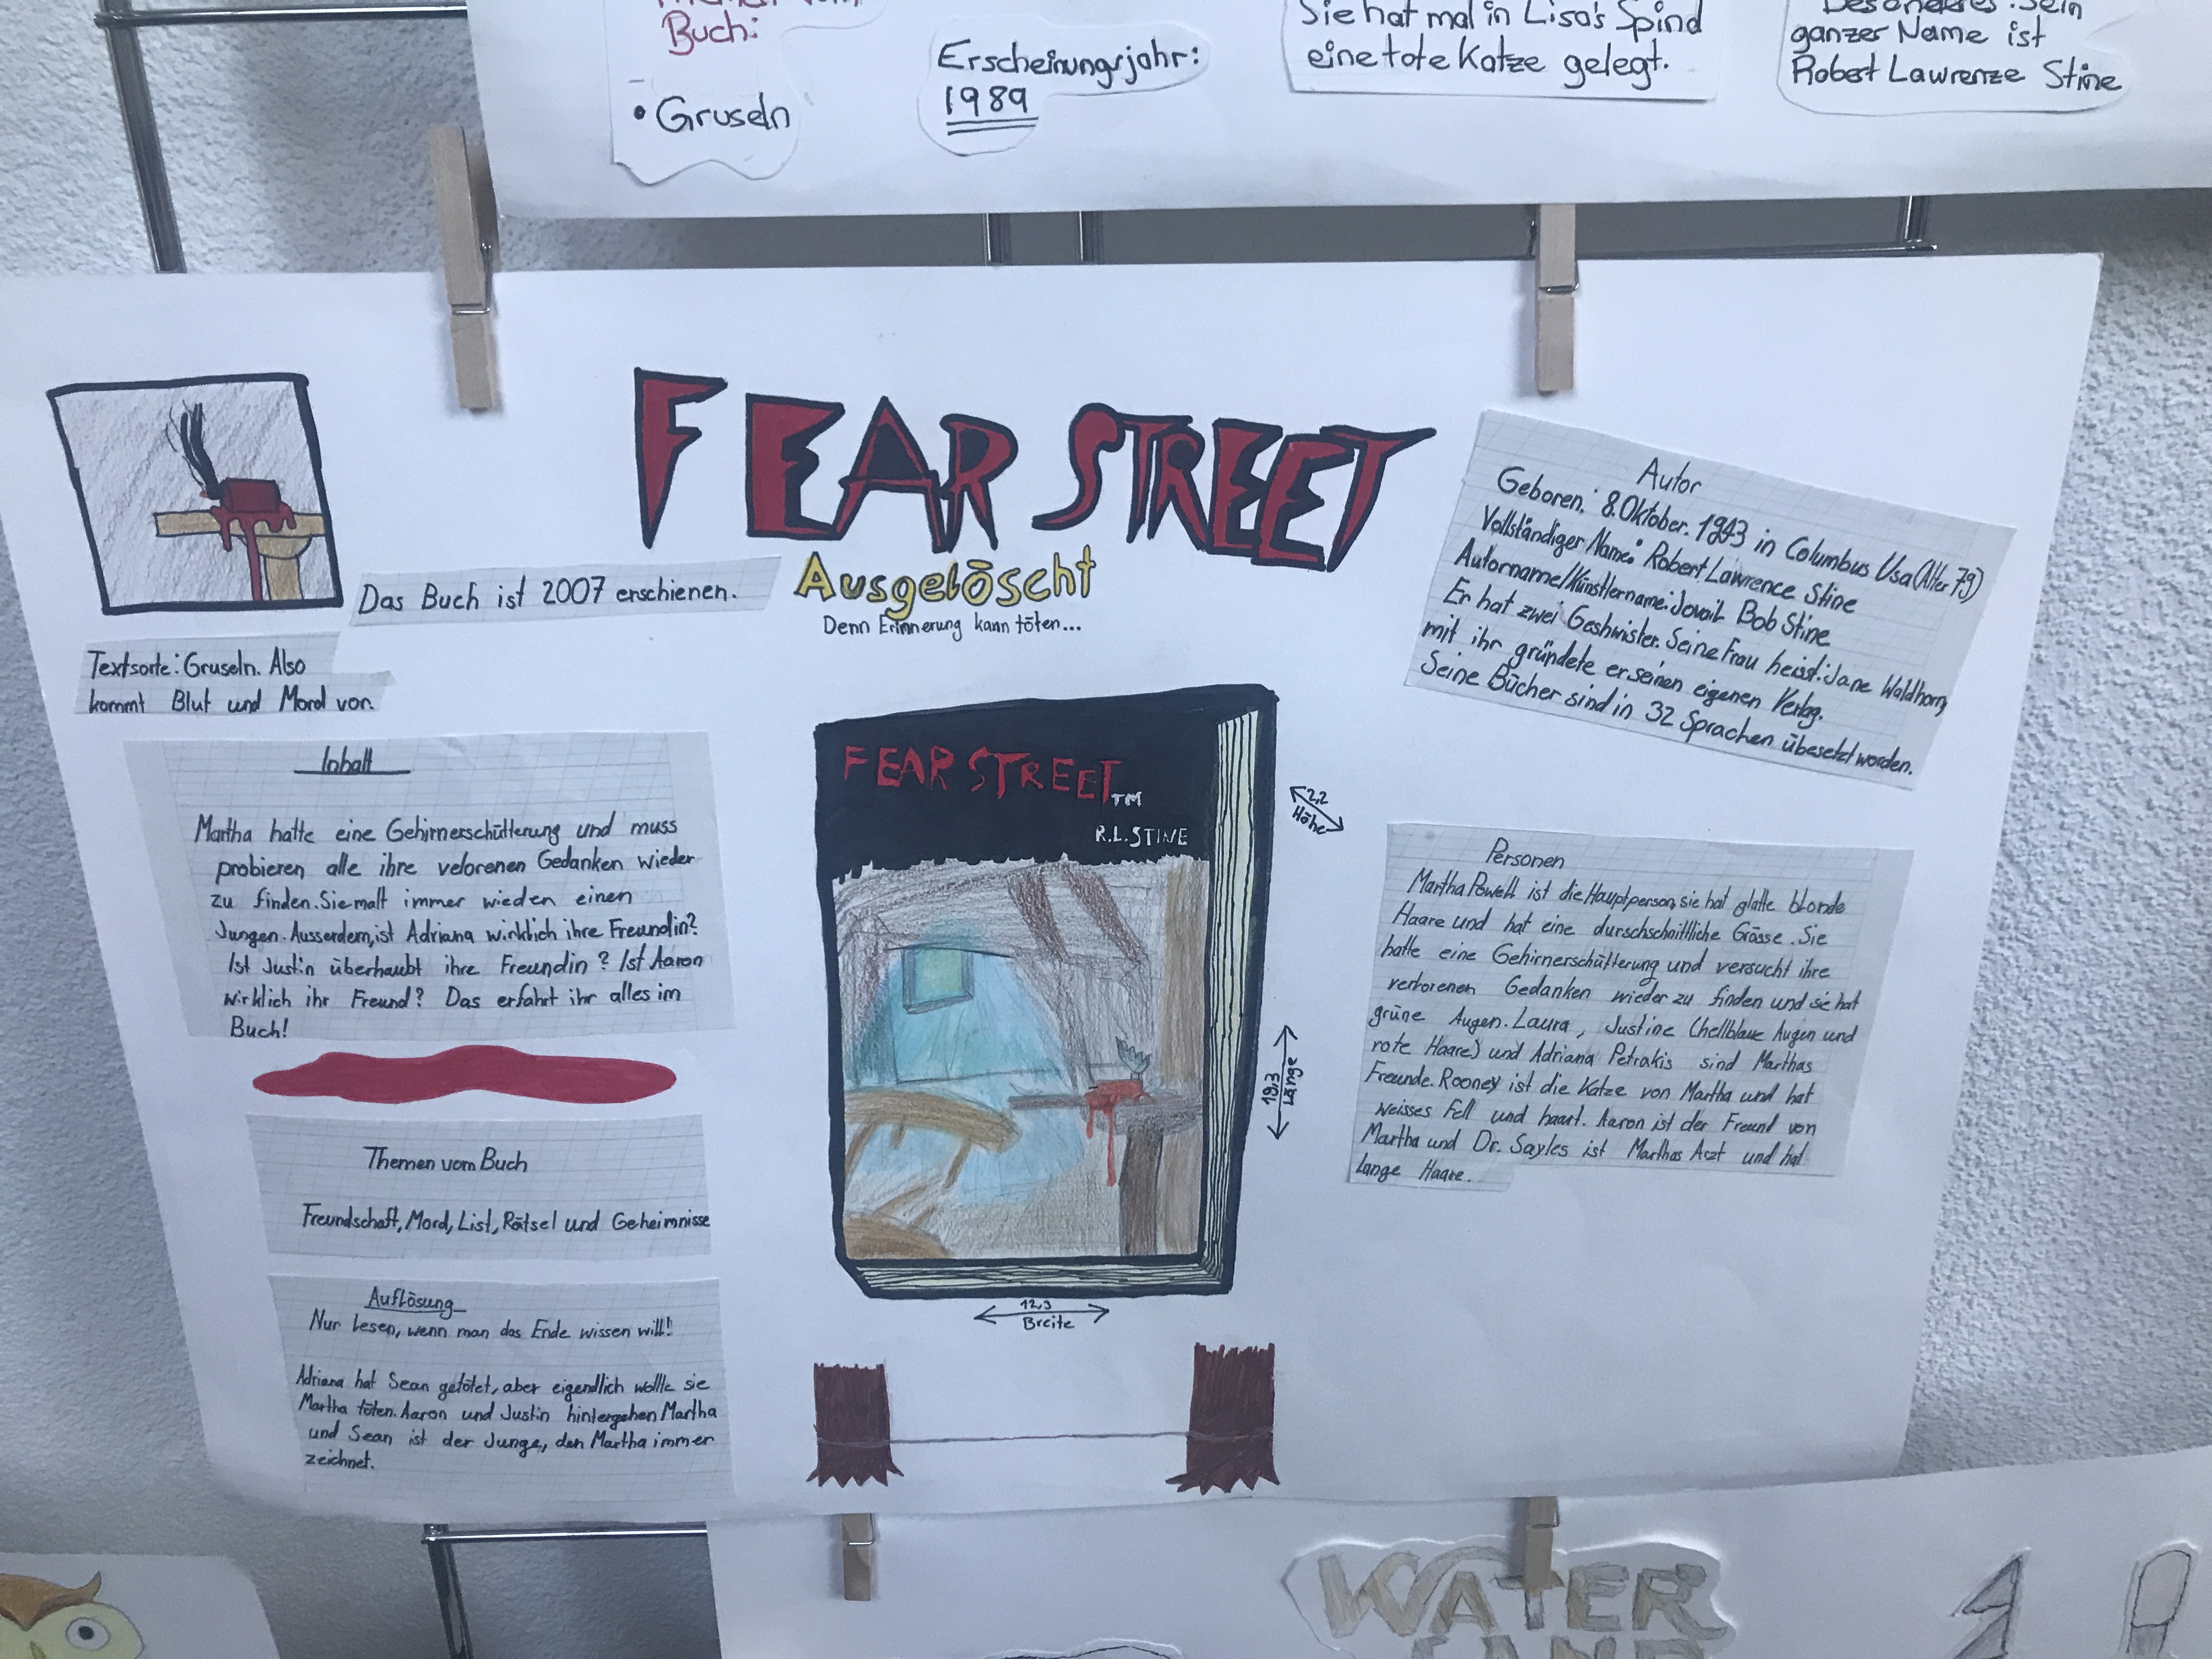 Buch:
• Gruseln
Erscheinungsjahr:
1989
Sie hat mal in Lisa's Spind
eine tote Katze gelegt.
ganzer Name ist
Robert Lawrenze Stine
FEAR STREET
Ausgelöscht
Denn Erinnerung kann töten...
Das Buch ist 2007 erschienen.
Textsorte: Gruseln. Also
kommt Blut und Mord vor.
Inhalt
Martha hatte eine Gehirnerschütterung und muss
probieren alle ihre velorenen Gedanken wieder
zu finden. Sie malt immer wieden einen
Jungen. Ausserdem, ist Adriana wirklich ihre Freundin?
Ist Justin überhaubt ihre Freundin? Ist Aaron
wirklich ihr Freund? Das erfahrt ihr alles im
Buch!
Themen vom Buch
Freundschaft, Mord, List, Rätsel und Geheimnisse
Auflösung
Nur lesen, wenn man das Ende wissen will!
Adriana hat Sean getötet, aber eigendlich wollte sie
Martha töten. Aaron und Justin hintergehen Martha
und Sean ist der Junge, den Martha immer
zeichnet.
FEAR STREET TM
R.L. STINE
2,2
Höhe
19,3
Länge
12,3
Breite
Autor
Geboren: 8. Oktober. 1943 in Columbus Usa (Alter 79)
Vollständiger Name: Robert Lawrence Stine
Autorname/Künstlername: Jovial Bob Stine
Er hat zwei Geshwister. Seine Frau heisst: Jane Waldhorn,
mit ihr gründete er seinen eigenen Verlag.
Seine Bücher sind in 32 Sprachen übesetzt worden.
Personen
Martha Powell ist die Hauptperson, sie hat glatte blonde
Haare und hat eine durschschnittliche Grösse. Sie
hatte eine Gehirnerschütterung und versucht ihre
verlorenen Gedanken wieder zu finden und sie hat
grüne Augen. Laura, Justine (hellblaue Augen und
rote Haare) und Adriana Petrakis sind Marthas
Freunde. Rooney ist die Katze von Martha und hat
weisses Fell und haart. Aaron ist der Freund von
Martha und Dr. Sayles ist Marthas Arzt und hat
lange Haare.
WATER